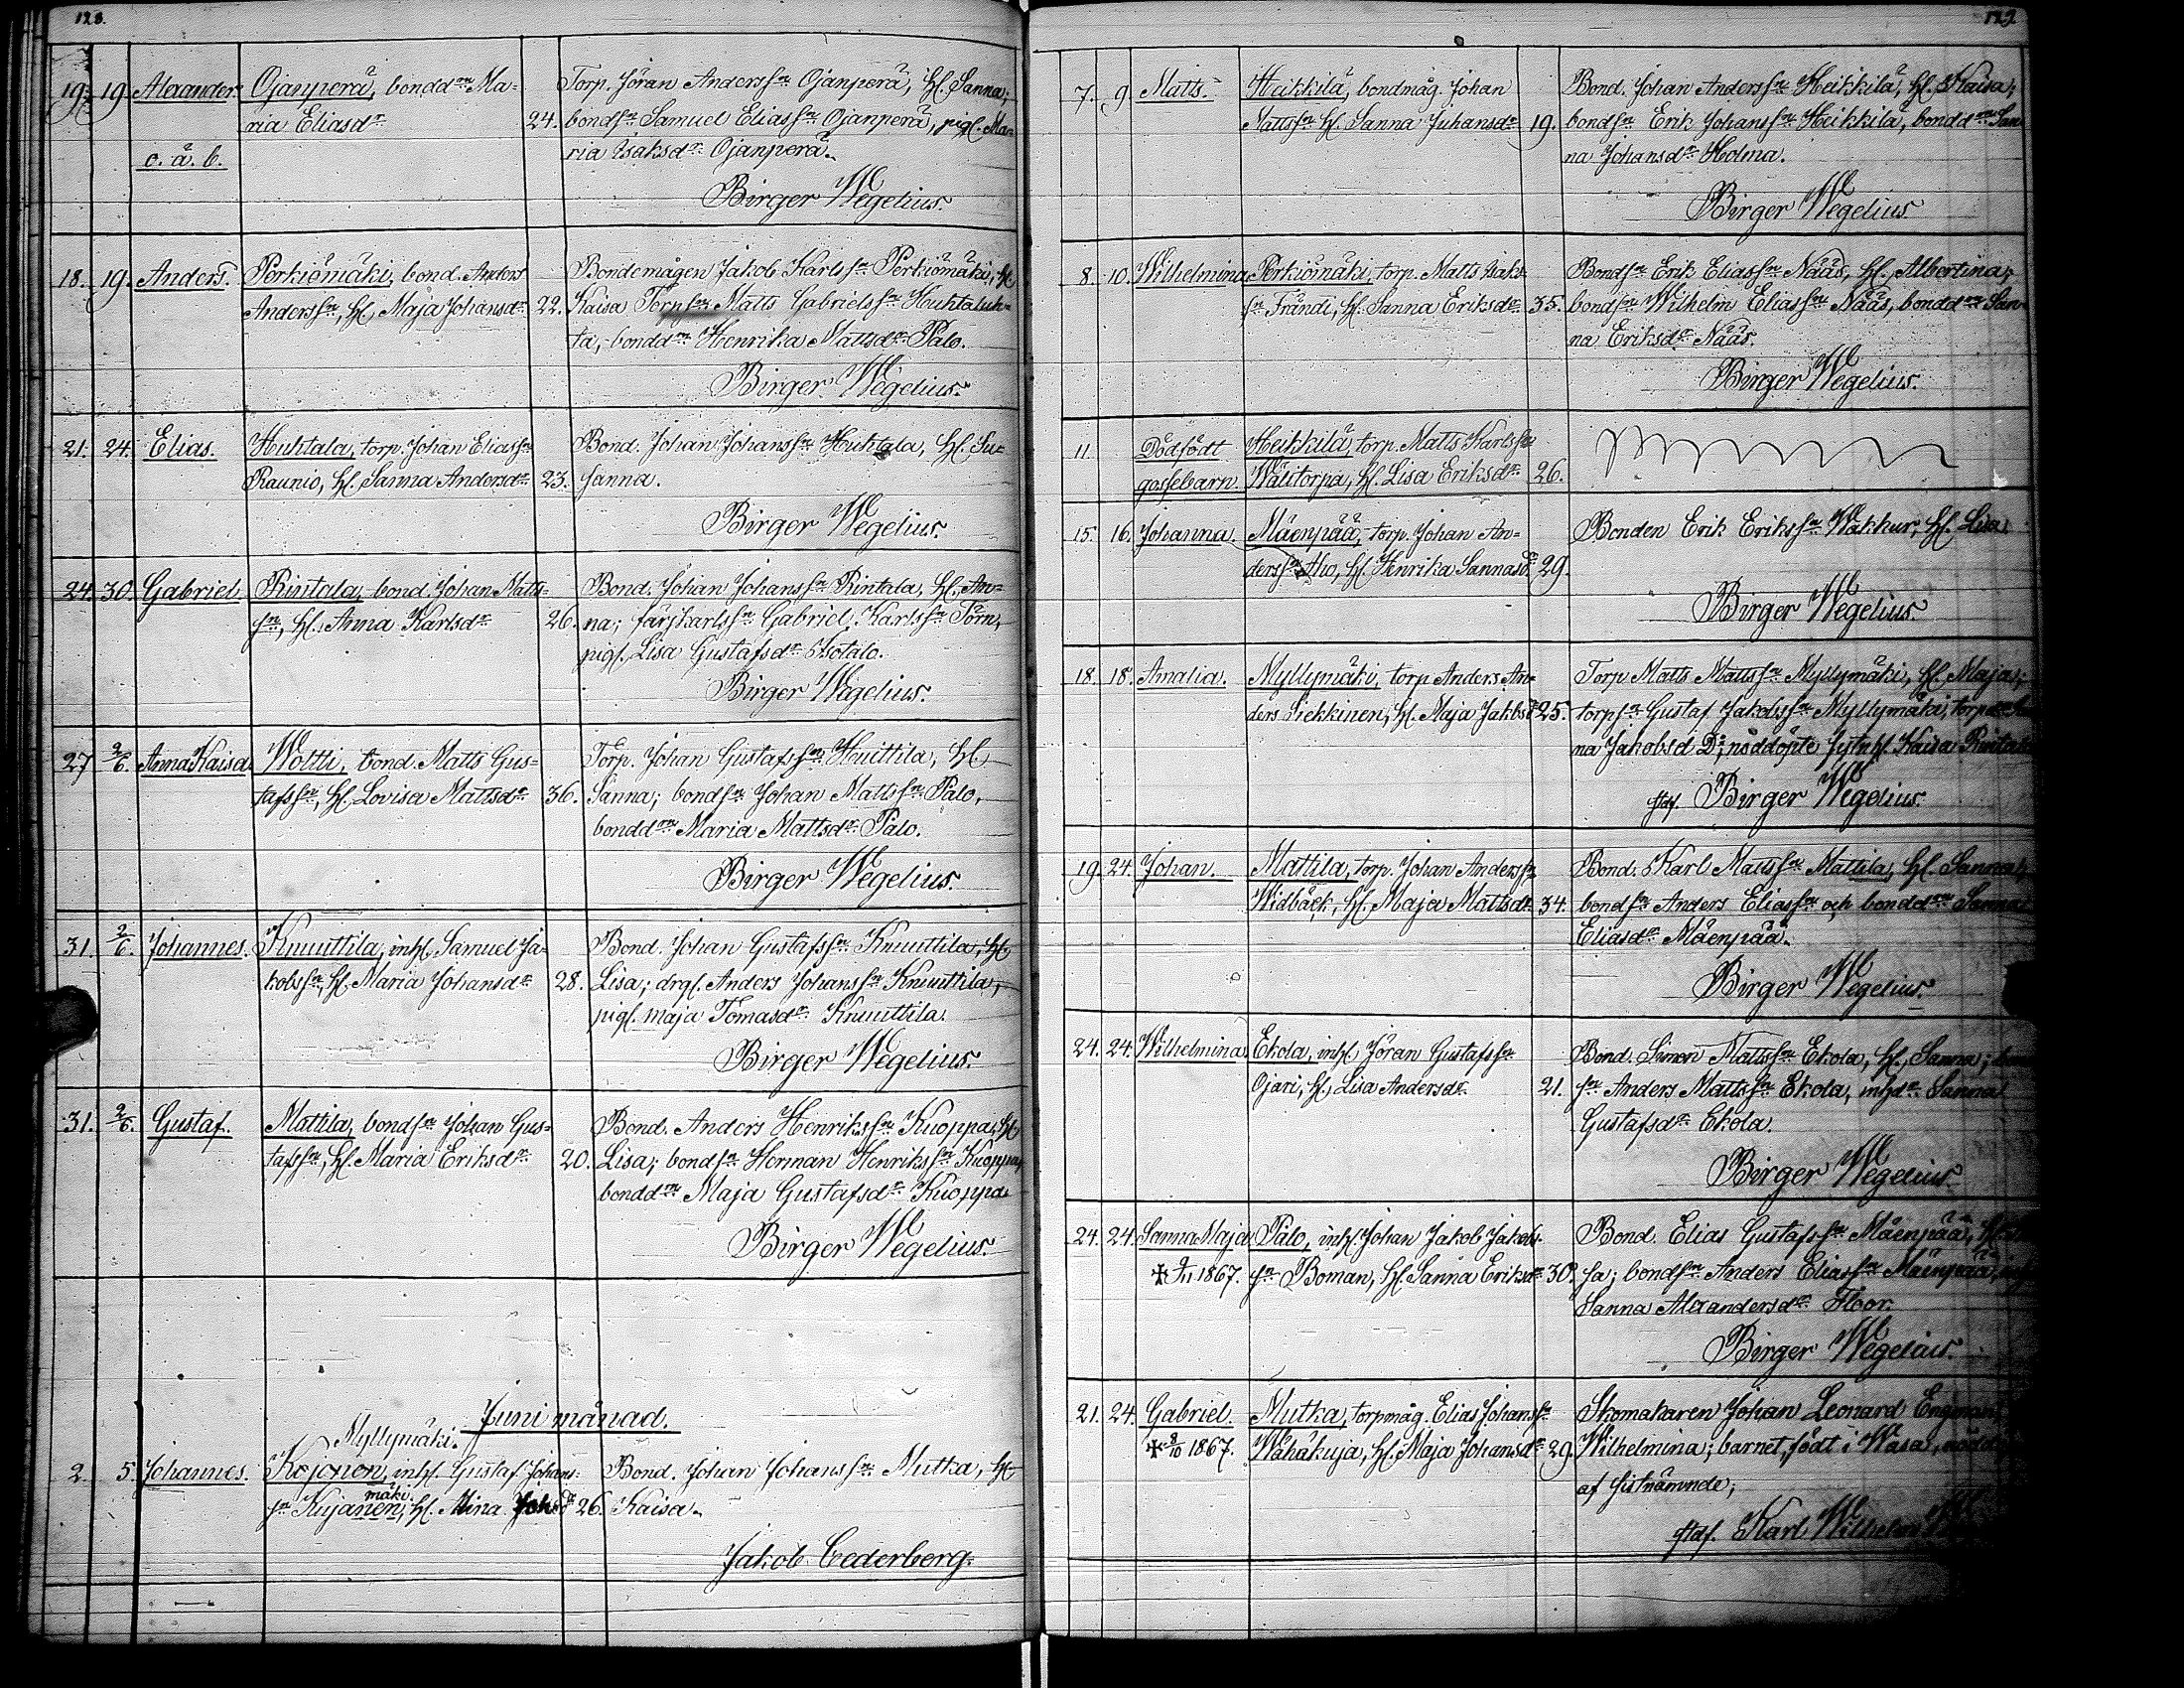 128.
19. 19. Alexander. Ojanperä, bondd:rn Ma-
ria Eliasd:r 24.
o. ä. b.
Torp. Jöran Anders:sn Ojanperä, h. Sanna;
bonds:n Samuel Elias:sn Ojanperä, pig. Ma-
ria Isaksd:r Ojanperä.
Birger Wegelius.
18. 19. Anders. Perkiömäki, bond. Anders
Anders:sn, h. Maja Johansd:r 22.
Bondemågen Jakob Karls:sn Perkiömäki, h.
Kaisa Torps:n Matts Gabriels:sn Huhtaluh-
ta, bondd:rn Henrika Mattsd:r Palo.
Birger Wegelius.
21. 24. Elias. Huhtala, torp. Johan Elias:sn
Raunio, h. Sanna Andersd:r 23.
Bond. Johan Johans:sn Huhtala, h. Su-
sanna.
Birger Wegelius.
24. 30. Gabriel. Rintala, bond. Johan Matts-
s:n, h. Anna Karlsd:r 26.
Bond. Johan Johans:sn Rintala, h. An-
na; färjkarls:n Gabriel Karls:sn Törn,
pig. Lisa Gustafsd:r Isotalo.
Birger Wegelius.
27 2/6. Anna Kaisa Woltti, bond. Matts Gus-
tafs:sn, h. Lovisa Mattsd:r 36.
Torp. Johan Gustafs:sn Huittila, h.
Sanna; bonds:n Johan Matts:sn Palo,
bondd:rn Maria Mattsd:r Palo.
Birger Wegelius.
31. 2/6. Johannes. Knuuttila, inh. Samuel Ja-
kobs:sn, h. Maria Johansd:r 28.
Bond. Johan Gustafs:sn Knuuttila, h.
Lisa; drg. Anders Johans:sn Knuuttila,
pig. Maja Tomasd:r Knuuttila.
Birger Wegelius.
31. 2/6. Gustaf. Mattila, bonds:n Johan Gus-
tafs:sn, h. Maria Eriksd:r 20.
Bond. Anders Henriks:sn Kuoppa, h.
Lisa; bonds:n Herman Henriks:sn Kuoppa,
bondd:rn Maja Gustafsd:r Kuoppa.
Birger Wegelius.
Juni månad.
Myllymäki.
2. 5. Johannes. Kojonen, inh. Gustaf Johans-
mäki
s:n Kujanen, h. Mina Joh:sd:r 26.
Bond. Johan Johans:sn Mutka, h.
Kaisa.
Jakob Cederberg.
129.
7. 9. Matts. Heikkilä, bondmåg. Johan
Matts:sn h. Sanna Juhansd:r 19.
Bond. Johan Anders:sn Heikkilä, h. Kaisa;
bonds:n Erik Johans:sn Heikkilä, bondd:rn San-
na Johansd:r Holma.
Birger Wegelius.
8. 10. Wilhelmina Perkiömäki, torp. Matts Isaks-
s:n Frändi, h. Sanna Eriksd:r 35.
Bonds:n Erik Elias:sn Näås, h. Albertina;
bonds:n Wilhelm Elias:sn Näås, bondd:rn San-
na Eriksd:r Näås.
Birger Wegelius.
11. Dödfödt Heikkilä, torp. Matts Karls:sn
gossebarn. Wälitorpa, h. Lisa Eriksd:r 26.
15. 16. Johanna. Mäenpää, torp. Johan An-
ders:sn Aho, h. Henrika Sannasd:r 29.
Bonden Erik Eriks:sn Wakkur, h. Lisa.
Birger Wegelius.
18. 18. Amalia. Myllymäki, torp Anders An-
ders Liekkinen, h. Maja Jakbsd 25.
Torp Matts Matts:sn Myllymäki, h. Maja;
torps:n Gustaf Jakobs:sn Myllymäki, torpd:r An
na Jakobsd D:o; nöddöpte Kaisa
Birger Wegelius.
19. 24. Johan. Mattila, torp. Johan Anders:sn
Widbäck, h. Maja Mattsd:r 34.
Bond. Karl Matts:sn Mattila, h. Sanna;
bonds:n Anders Elias:sn och bondd:rn Sanna
Eliasd:r Mäenpää.
Birger Wegelius.
24. 24. Wilhelmina Ekola, inh. Jöran Gustafs:sn
Ojari, h. Lisa Andersd:r 21.
Bond. Simon Matts:sn Ekola, h. Sanna;
s:n Anders Matts:sn Ekola, inhd:r Sanna
Gustafsd:r Ekola.
Birger Wegelius.
24. 24. Sanna Maja Palo, inh. Johan Jakob Jakobs-
1867. s:n Boman, h. Sanna Eriksd:r 30.
Bond. Elias Gustafs:sn Mäenpää,
sa; bonds:n Anders Elias:sn Mäenpää,
Sanna Alexandersd:r Floor.
Birger Wegelius.
21. 24. Gabriel. Mutka, torpmåg. Elias Johans:sn
8/10 1867. Wähäkuja, h. Maja Johansd:r 29.
Skomakaren Johan Leonard Engman,
Wilhelmina; barnet, födt i Wasa,
af sistnämnde;
Karl Wilhelm